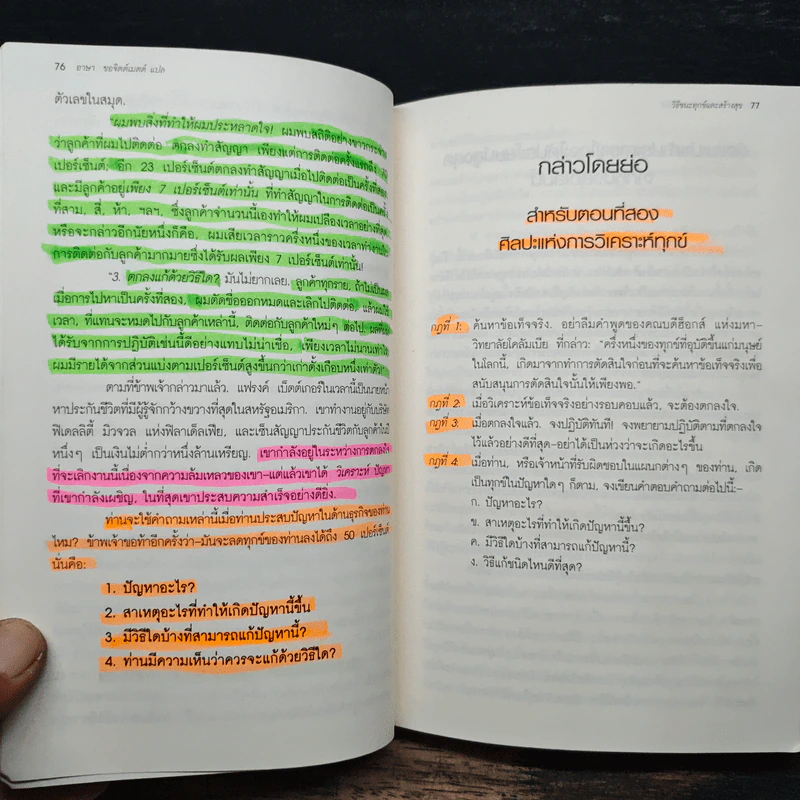 76 อาษา ขอจิตต์เมตต์ แปล
ตัวเลขในสมุด.
ผมพบสิ่งที่ทำให้ผมประหลาดใจ! ผมพบสถิติอย่างขาวกระจ่าง
ว่าลูกค้าที่ผมไปติดต่อ ตกลงทำสัญญา เพียงแต่การติดต่อครั้งแรกถึง
เปอร์เซ็นต์; อีก 23 เปอร์เซ็นต์ตกลงทำสัญญาเมื่อไปติดต่อเป็นครั้งที่สอง
และมีลูกค้าอยู่เพียง 7 เปอร์เซ็นต์เท่านั้น ที่ทำสัญญาในการติดต่อครั้ง
ที่สาม, สี่, ห้า, ฯลฯ, ซึ่งลูกค้าจำนวนนี้เองทำให้ผมเปลืองเวลาอย่างที่สุด
หรือจะกล่าวอีกนัยหนึ่งก็คือ, ผมเสียเวลาราวครึ่งหนึ่งของเวลาทำงานใน
การติดต่อกับลูกค้ามากมายซึ่งได้รับผลเพียง 7 เปอร์เซ็นต์เท่านั้น!
"3. ตกลงแก้ด้วยวิธีใด? มันไม่ยากเลย. ลูกค้าทุกราย, ถ้าไม่ตกลง
เมื่อการไปหาเป็นครั้งที่สอง, ผมตัดชื่อออกหมดและเลิกไปติดต่อ,
เวลา, ที่แทนจะหมดไปกับลูกค้าเหล่านี้, ติดต่อกับลูกค้าใหม่ๆ ต่อไป, ผลที่ผม
ได้รับจากการปฏิบัติเช่นนี้ดีอย่างแทบไม่น่าเชื่อ, เพียงเวลาไม่นานเท่าใด
ผมมีรายได้จากส่วนแบ่งตามเปอร์เซ็นต์สูงขึ้นกว่าเก่าตั้งเกือบหนึ่งเท่าตัว
ตามที่ข้าพเจ้ากล่าวมาแล้ว, แฟรงค์ เบ็ตต์เกอร์ในเวลานี้เป็นนายหน้า
หาประกันชีวิตที่มีผู้รู้จักกว้างขวางที่สุดในสหรัฐอเมริกา. เขาทำงานอยู่กับบริษัท
ฟิเดลลิตี้ มิวจวล แห่งฟิลาเด็ลเฟีย, และเซ็นสัญญาประกันชีวิตกับลูกค้าในปี
หนึ่งๆ เป็นเงินไม่ต่ำกว่าหนึ่งล้านเหรียญ. เขากำลังอยู่ในระหว่างการตกลงใจ
ที่จะเลิกงานนี้เนื่องจากความล้มเหลวของเขา–แต่แล้วเขาได้ วิเคราะห์ ปัญหา
ที่เขากำลังเผชิญ, ในที่สุดเขาประสบความสำเร็จอย่างดียิ่ง.
ท่านจะใช้คำถามเหล่านี้เมื่อท่านประสบปัญหาในด้านธุรกิจของท่าน
ไหม? ข้าพเจ้าขอท้าอีกครั้งว่า–มันจะลดทุกข์ของท่านลงได้ถึง 50 เปอร์เซ็นต์
นั่นคือ:
1. ปัญหาอะไร?
2. สาเหตุอะไรที่ทำให้เกิดปัญหานี้ขึ้น
3. มีวิธีใดบ้างที่สามารถแก้ปัญหานี้?
4. ท่านมีความเห็นว่าควรจะแก้ด้วยวิธีใด?
วิธีชนะทุกข์และสร้างสุข 77
กล่าวโดยย่อ
สำหรับตอนที่สอง
ศิลปะแห่งการวิเคราะห์ทุกข์
กฎที่ 1: ค้นหาข้อเท็จจริง. อย่าลืมคำพูดของคณบดีฮ็อกส์ แห่งมหา-
วิทยาลัยโคลัมเบีย ที่กล่าว: "ครึ่งหนึ่งของทุกข์ที่อุบัติขึ้นแก่มนุษย์
ในโลกนี้, เกิดมาจากการตัดสินใจก่อนที่จะค้นหาข้อเท็จจริงเพื่อ
สนับสนุนการตัดสินใจนั้นให้เพียงพอ."
กฎที่ 2: เมื่อวิเคราะห์ข้อเท็จจริงอย่างรอบคอบแล้ว, จะต้องตกลงใจ.
กฎที่ 3: เมื่อตกลงใจแล้ว, จงปฏิบัติทันที! จงพยายามปฏิบัติตามที่ตกลงใจ
ไว้แล้วอย่างดีที่สุด–อย่าได้เป็นห่วงว่าจะเกิดอะไรขึ้น
กฎที่ 4: เมื่อท่าน, หรือเจ้าหน้าที่รับผิดชอบในแผนกต่างๆ ของท่าน, เกิด
เป็นทุกข์ในปัญหาใดๆ ก็ตาม, จงเขียนคำตอบคำถามต่อไปนี้:–
ก. ปัญหาอะไร?
ข. สาเหตุอะไรที่ทำให้เกิดปัญหานี้ขึ้น?
ค. มีวิธีใดบ้างที่สามารถแก้ปัญหานี้?
ง. วิธีแก้ชนิดไหนดีที่สุด?